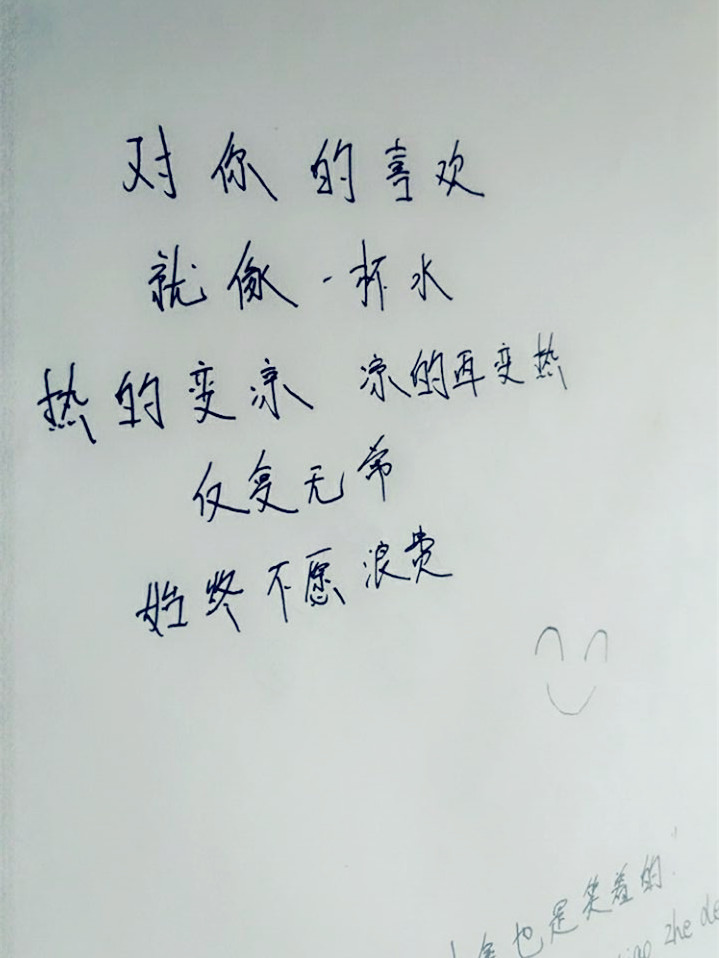 对你的喜欢
就像一杯水
热的变凉 凉的再变热
反复无常
始终不愿浪费
也是笑着的
zhe de